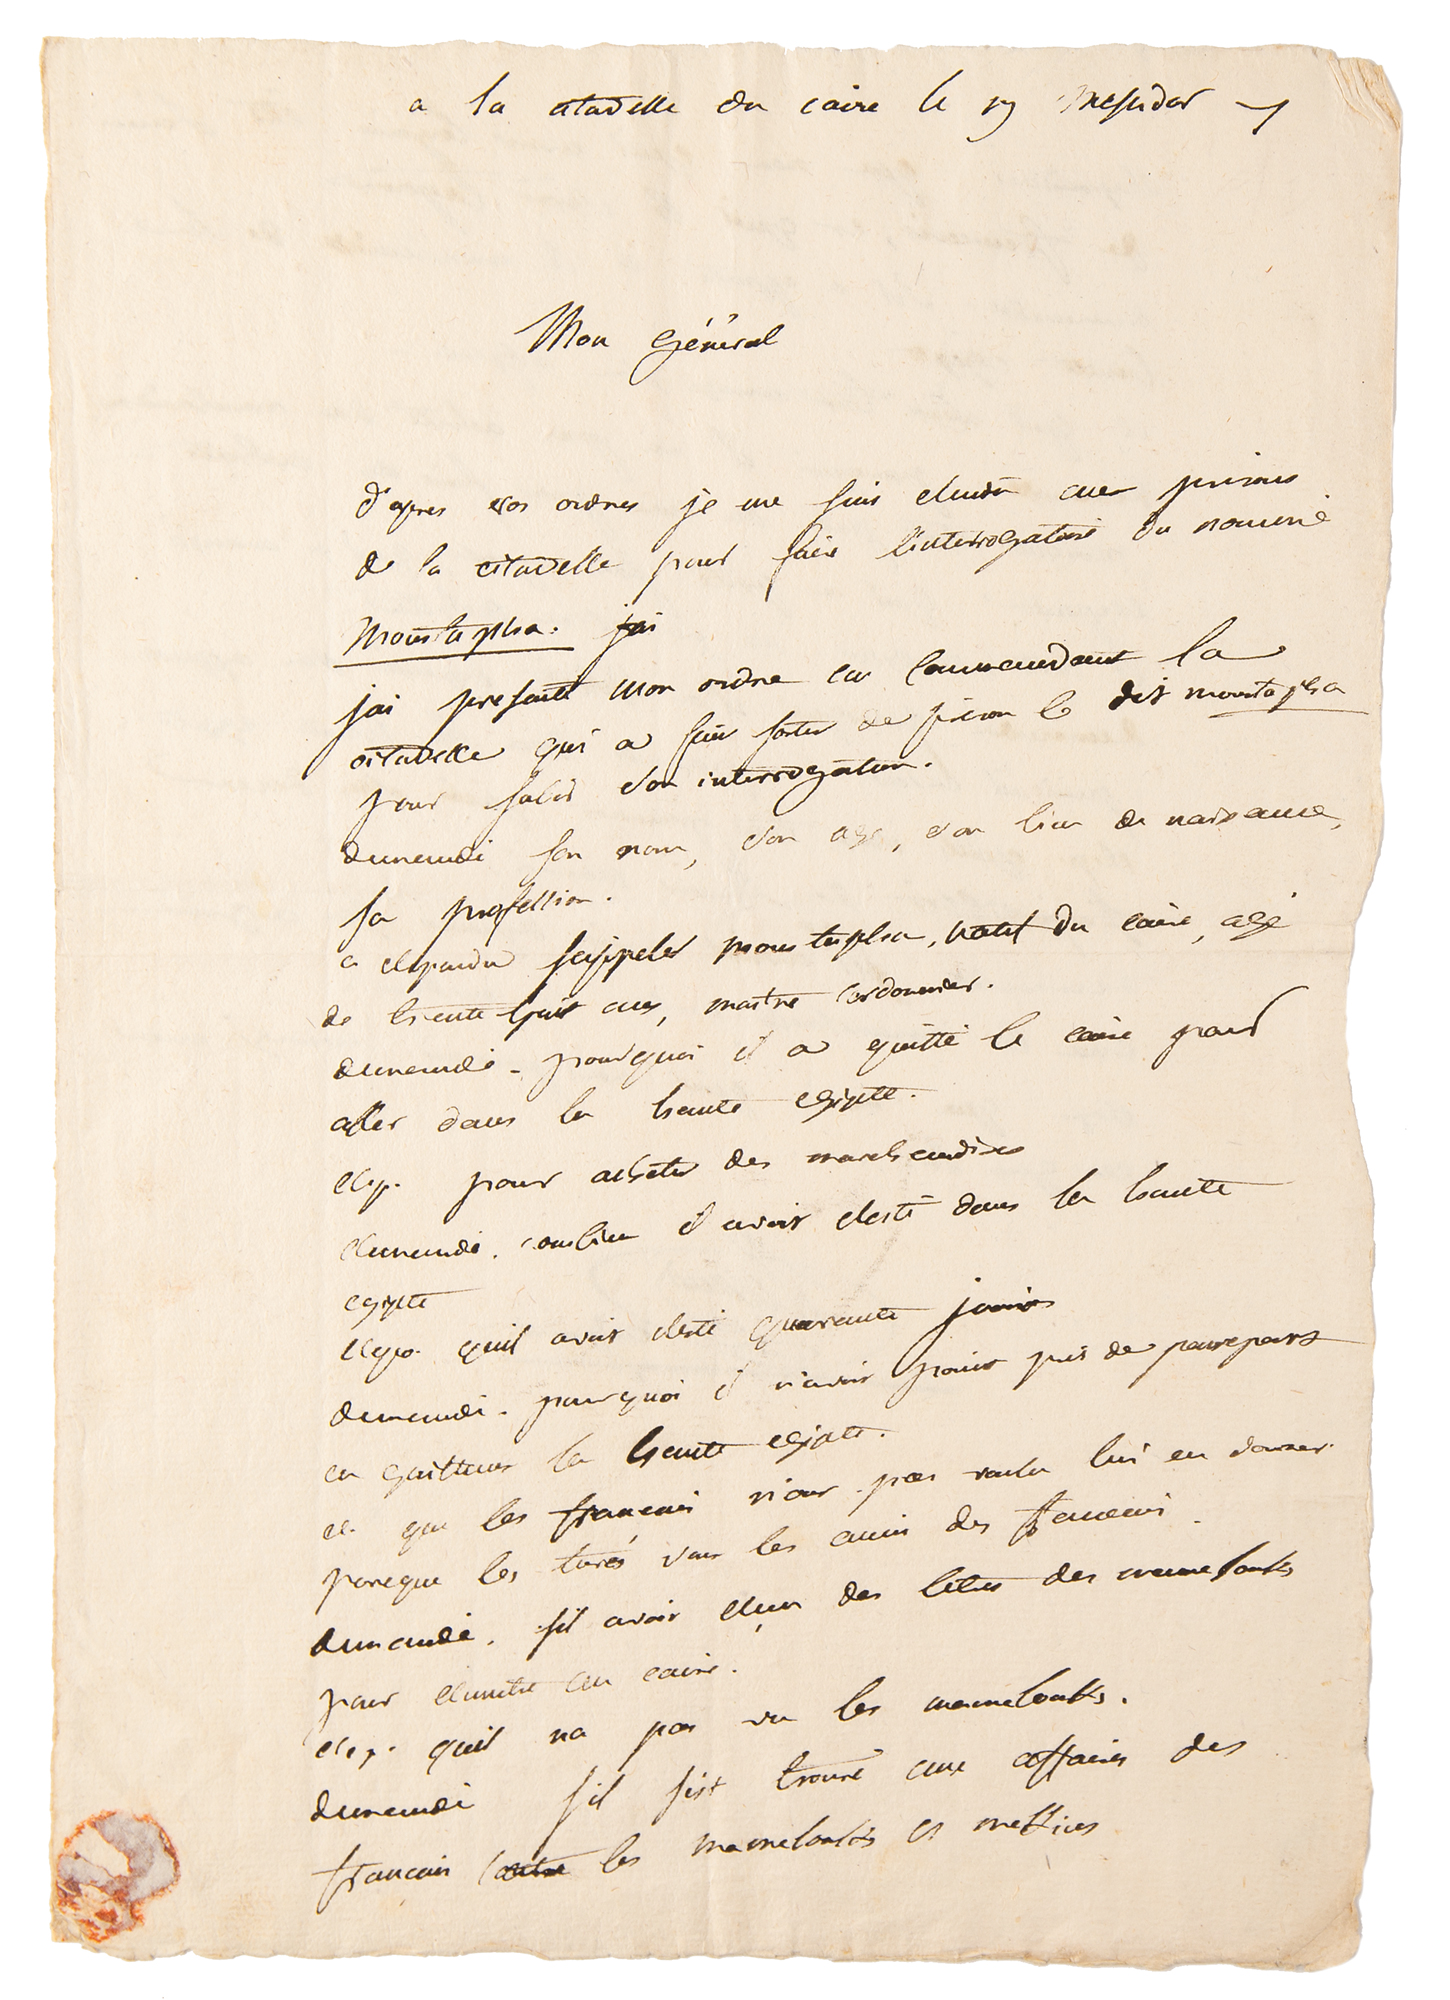 a la citadelle du caire le 19 messidor 7
Mon général
d'apres vos ordres je me suis rendu aux prisons
de la citadelle pour faire l'interrogatoire du nommé
Moustapha. jai
jai presenté mon ordre au commandant la
citadelle qui a fait sortir de prison le dit moustapha
pour subir son interrogatoire.
demandé son nom, son age, son lieu de naissance,
sa profession.
a repondu sappeler moustapha, natif du caire, agé
de trente huit ans, maitre cordonnier.
demandé - pourquoi il a quitté le caire pour
aller dans la haute egipte.
rep. pour acheter des marchandises
demandé. combien il avoit resté dans la haute
egipte
rep. quil avoit resté quarante jours
demandé - pourquoi il n'avoit point pris de passeport
en quittant la haute egipte.
r. que les francais n'ont pas voulu lui en donner
parceque les turcs sont les amis des francais.
demandé. sil avoit reçu des lettres des mamelouks
pour remettre au caire.
rep. quil na pas vu les mamelouks.
demandé sil sest trouvé aux affaires des
francais contre les mamelouks et mekkins